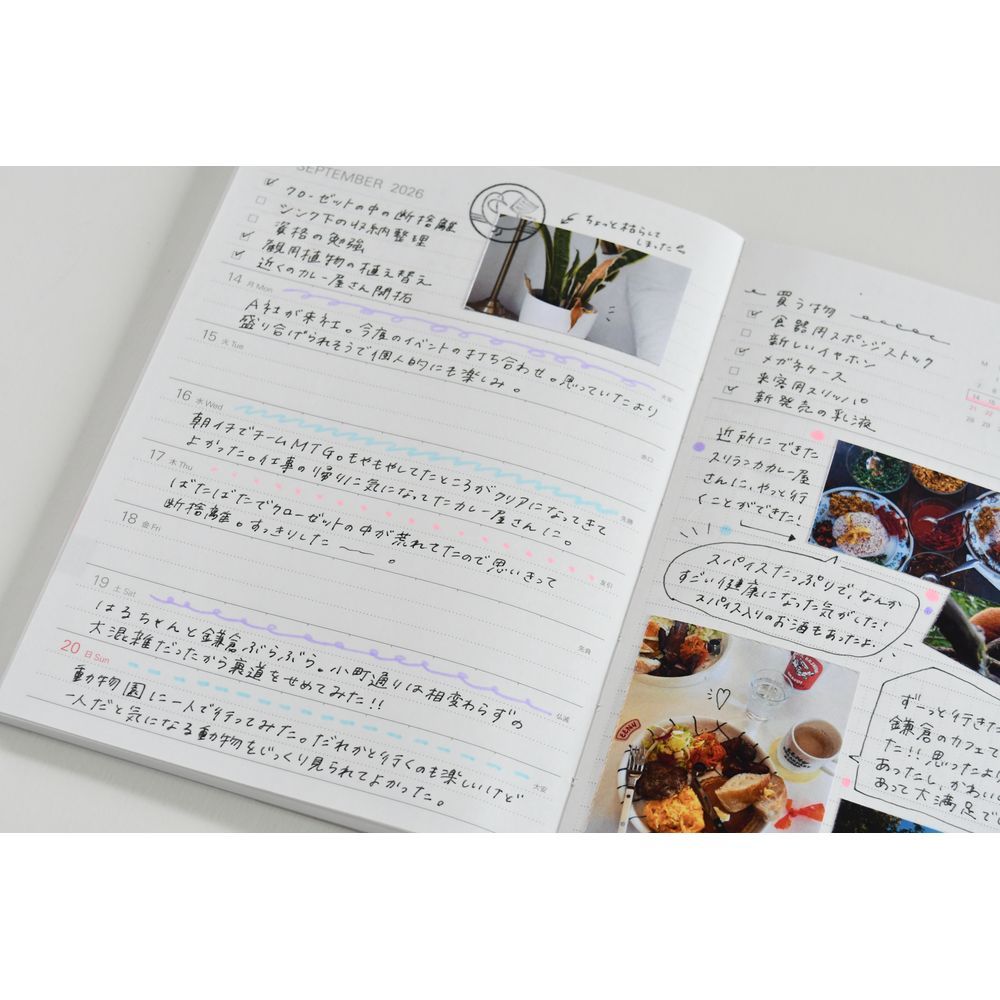 SEPTEMBER 2026
クローゼットの中の断捨離
シンク下の収納整理
資格の勉強
観用植物の植え替え
近くのカレー屋さん開拓
ちょっと枯らして
しまった
14 月 Mon
A社が来社。今度のイベントの打ち合わせ。思っていたより
盛り上げられそうで個人的にも楽しみ。
大安
15 火 Tue
赤口
16 水 Wed
朝イチでチームMTG。もやもやしてたところがクリアになってきて
よかった。仕事の帰りに気になってたカレー屋さんに。
先勝
17 木 Thu
ばたばたでクローゼットの中が荒れてたので思いきって
断捨離。すっきりした〜〜。
友引
18 金 Fri
先負
19 土 Sat
はるちゃんと鎌倉ぶらぶら。小町通りは相変わらずの
大混雑だったから裏道をせめてみた!!
仏滅
20 日 Sun
動物園に一人で行ってみた。だれかと行くのも楽しいけど
一人だと気になる動物をじっくり見られてよかった。
大安
買う物
食器用スポンジストック
新しいイヤホン
メガネケース
来客用スリッパ
新発売の乳液
M
14 15
21 22
28 29
近所にできた
スリランカカレー屋
さんに、やっと行
くことができた!
スパイスたっぷりで、なんか
すごい健康になった気がした!
スパイス入りのお酒もあったよ。
ずーっと行きた
鎌倉のカフェで
た!!思ったより
あったし、かわい
あって大満足で